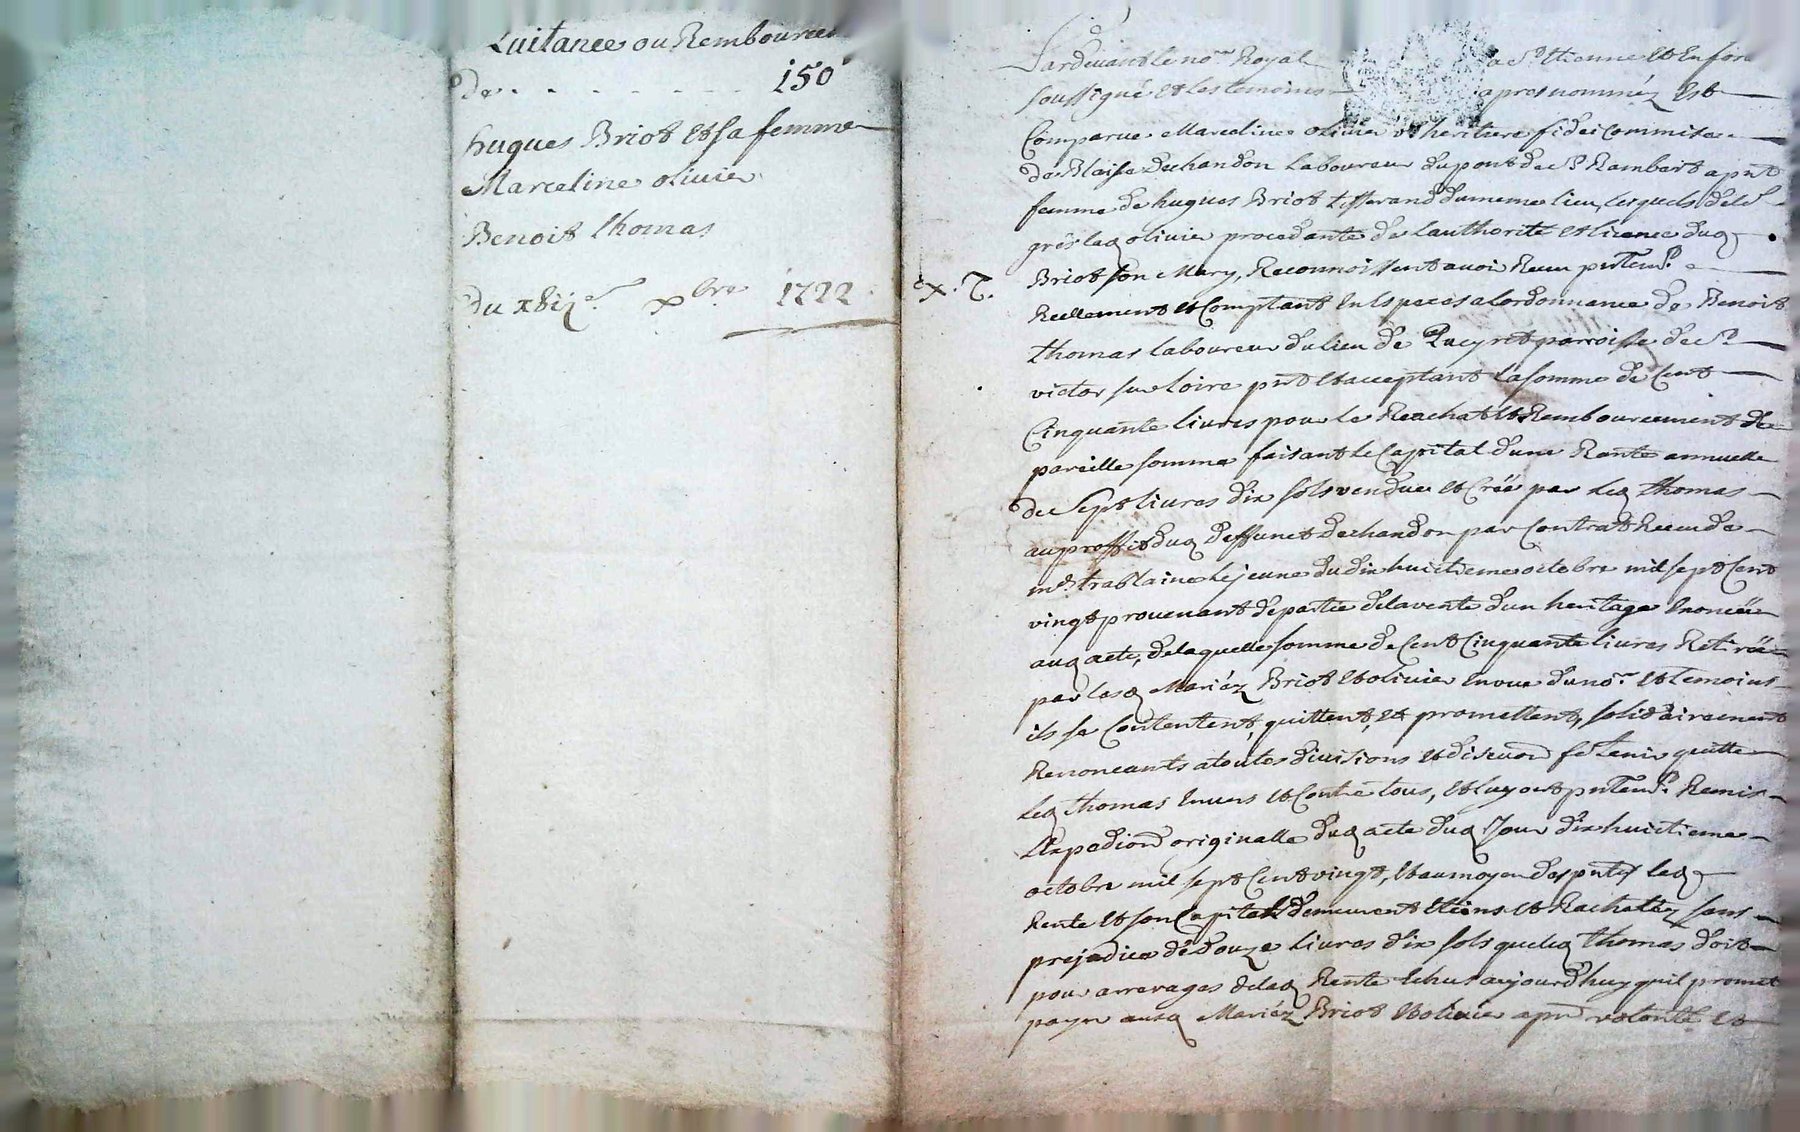 Quitance ou Rembourcem
de . . . . . . . . 150
hugues Briot et sa femme
Marceline olivier
Benoit thomas
du xbij.e xbre 1722
Pardevant le no.re Royal a St Etienne et en fore
soussigné et les temoins apres nomméz Est
Comparue Marceline olivier heritiere fideicommise
de Blaise Dechandon Laboureur du pont de St Rambert a pnt
femme de hugues Briot tisserand du meme lieu, lesquels de le
grés lad olivier procedante de l'authorité et licence dud
Briot son Mary, Reconnoissent avoir Receu pntem.t
ex. T.
Reellement et Comptant en Espaces a l'ordonnance de Benoit
thomas laboureur du lieu de parroisse de St
victor sur loire pnt et acceptant la somme de Cent
Cinquante livres pour le Reachat et Rembourcement de
pareille somme faisant le Capital d'une Rente annuelle
de Sept livres dix sols vendue et Créé par led thomas
au proffit dud deffunct Dechandon par Contrat Receu de
m.e trablaine le jeune du dix huictieme octobre mil sept Cent
vingt provenant de partie de la vente d'un heritage Enoncéé
aud acte, de laquelle somme de Cent Cinquante livres Retiréé
par lesd Mariéz Briot et olivier en vue du no.re et temoins
ils se Contentent, quittent, et promettent, solidairement
Renoncants a toutes divisions et discuon fe tenir quitte
led thomas Envers et Contre tous, et luy ont pntem.t Remis
L'Expedion originalle dud acte dud Jour dix huictieme
octobre mil sept Cent vingt, et au moyen des pntes lad
Rente et son Capital demeurent Eteins et Rachettez sans
prejudice de douze livres dix sols que led thomas doit
pour arrerages de lad Rente Echus aujourd'huy quil promet
payer ausd Mariéz Briot et olivier a pre volonté et